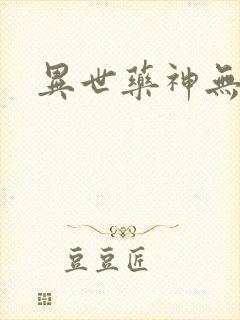 異世藥神無
豆豆匠